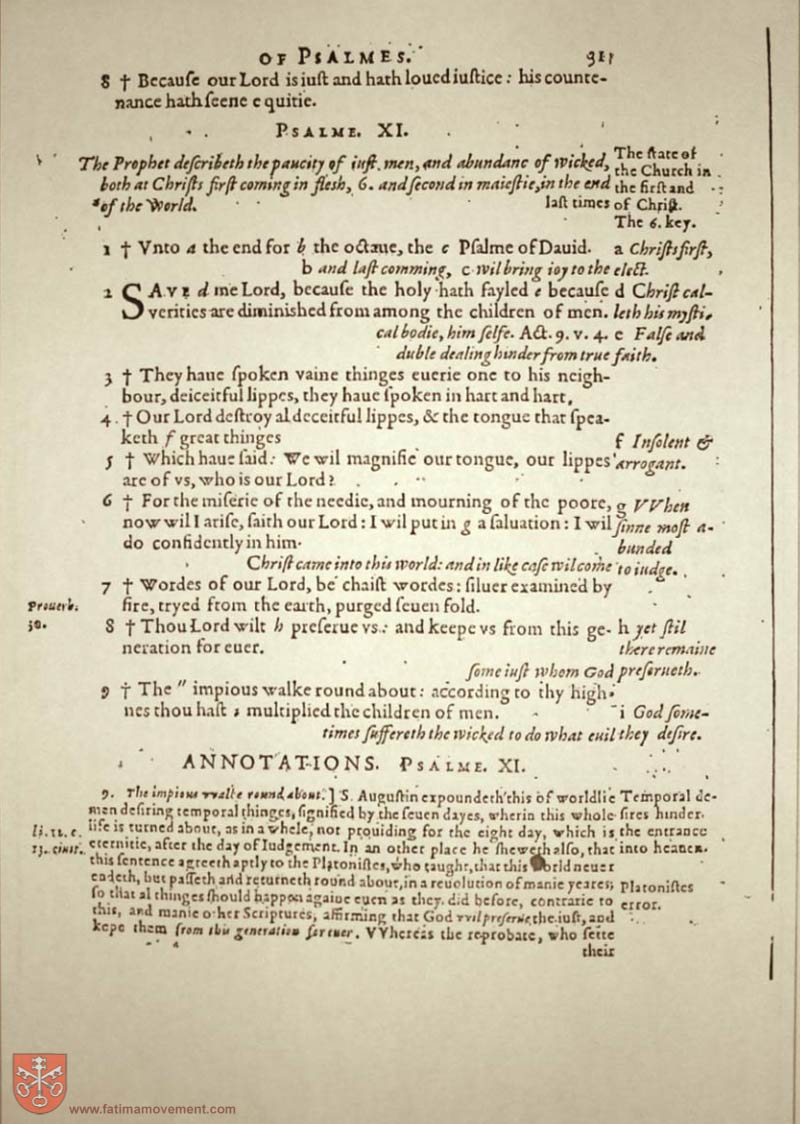 OF PSALMES. 311
8 † Becauſe our Lord is iuſt and hath loued iuſtice: his counte-
nance hath ſeene equitie.
PSALME. XI.
The Prophet deſcribeth the paucity of iuſt men, and abundanc of wicked, The ſtate of
both at Chriſts firſt coming in fleſh, 6. and ſecond in maieſtie, in the end the Church in
of the World. the firſt and
laſt times of Chriſt.
The 6. key.
1 † Vnto a the end for b the octaue, the c Pſalme of Dauid. a Chriſts firſt,
b and laſt comming, c wil bring ioy to the elect.
2 SAVE d me Lord, becauſe the holy hath fayled e becauſe d Chriſt cal-
verities are diminiſhed from among the children of men. leth his myſti,
cal bodie, him ſelfe. Act. 9. v. 4. e Falſe and
duble dealing hinder from true faith.
3 † They haue ſpoken vaine thinges euerie one to his neigh-
bour, deiceitful lippes, they haue ſpoken in hart and hart,
4. † Our Lord deſtroy al deceitful lippes, & the tongue that ſpea-
keth f great thinges f Inſolent &
5 † Which haue ſaid: We wil magnifie our tongue, our lippes arrogant.
are of vs, who is our Lord?
6 † For the miſerie of the needie, and mourning of the poore, g VVhen
now wil I ariſe, ſaith our Lord: I wil put in g a ſaluation: I wil ſinne moſt a-
do confidently in him. bunded
Chriſt came into this world: and in like caſe wil come to iudge.
7 † Wordes of our Lord, be chaiſt wordes: ſiluer examined by
Prouerb. fire, tryed from the earth, purged ſeuen fold.
30. 8 † Thou Lord wilt h preſerue vs: and keepe vs from this ge- h yet ſtil
neration for euer. there remaine
ſome iuſt whom God preſerueth.
9 † The " impious walke round about: according to thy high-
nes thou haſt i multiplied the children of men. i God ſome-
times ſuffereth the wicked to do what euil they deſire.
ANNOTATIONS. PSALME. XI.
9. The impious vvalke round about.] S. Auguſtin expoundeth this of worldlie Temporal de-
men deſiring temporal thinges, ſignified by the ſeuen dayes, wherin this whole ſires hinder
life is turned about, as in a whele, not prouiding for the eight day, which is the entrance
li. 12. c. eternitie, after the day of Iudgement. In an other place he ſheweth alſo, that into heauen.
13. ciuit. this ſentence agreeth aptly to the Platoniſtes, who taught, that this World neuer
endeth, but paſſeth and returneth round about, in a reuolution of manie yeares; Platoniſtes
ſo that al thinges ſhould happen againe euen as they did before, contrarie to error.
this, and manie other Scriptures, affirming that God vvil preſerue the iuſt, and
kepe them from this generation for euer. VVhereas the reprobate, who ſette
their
www.fatimamovement.com